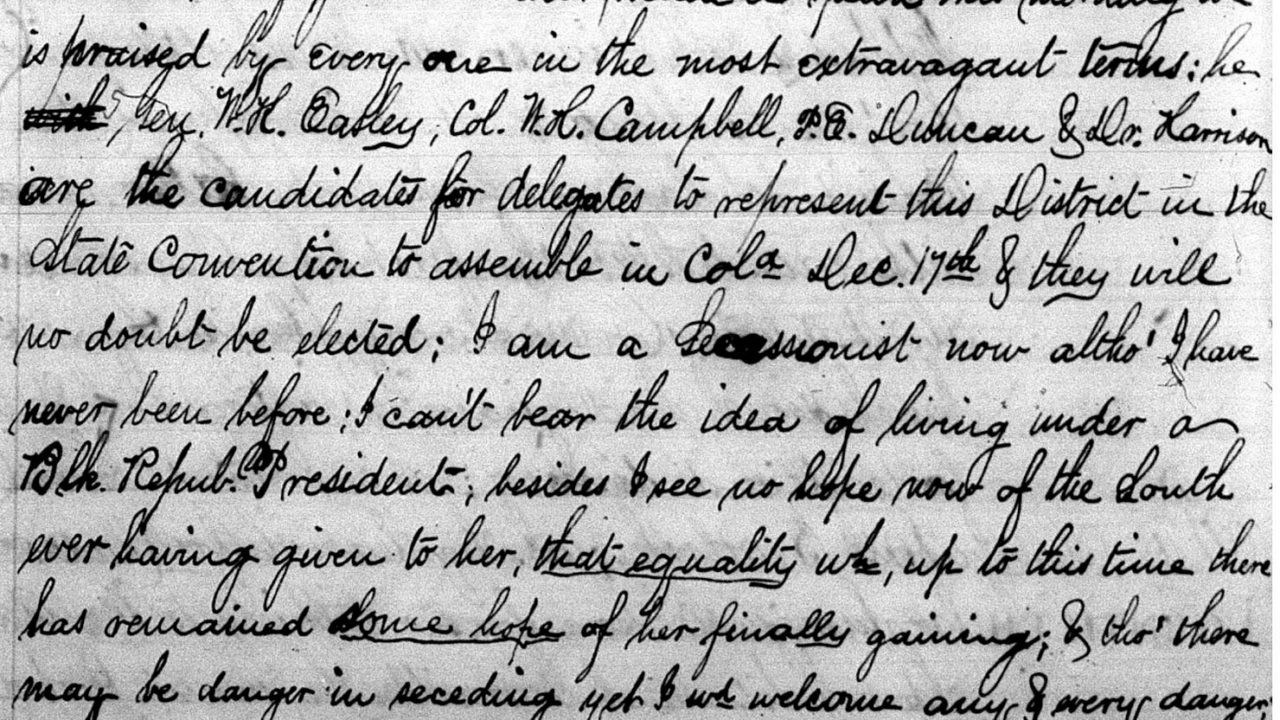 is praised by every one in the most extravagant terms: he
Gen. W.H. Easley, Col. W.H. Campbell, P.E. Duncan & Dr. Harrison
are the candidates for delegates to represent this District in the
State Convention to assemble in Cola Dec. 17th & they will
no doubt be elected; I am a Secessionist now altho' I have
never been before; I can't bear the idea of living under a
Blk. Repub. President; besides I see no hope now of the South
ever having given to her, that equality wh, up to this time there
has remained some hope of her finally gaining; & tho' there
may be danger in seceding yet I wd welcome any & every danger